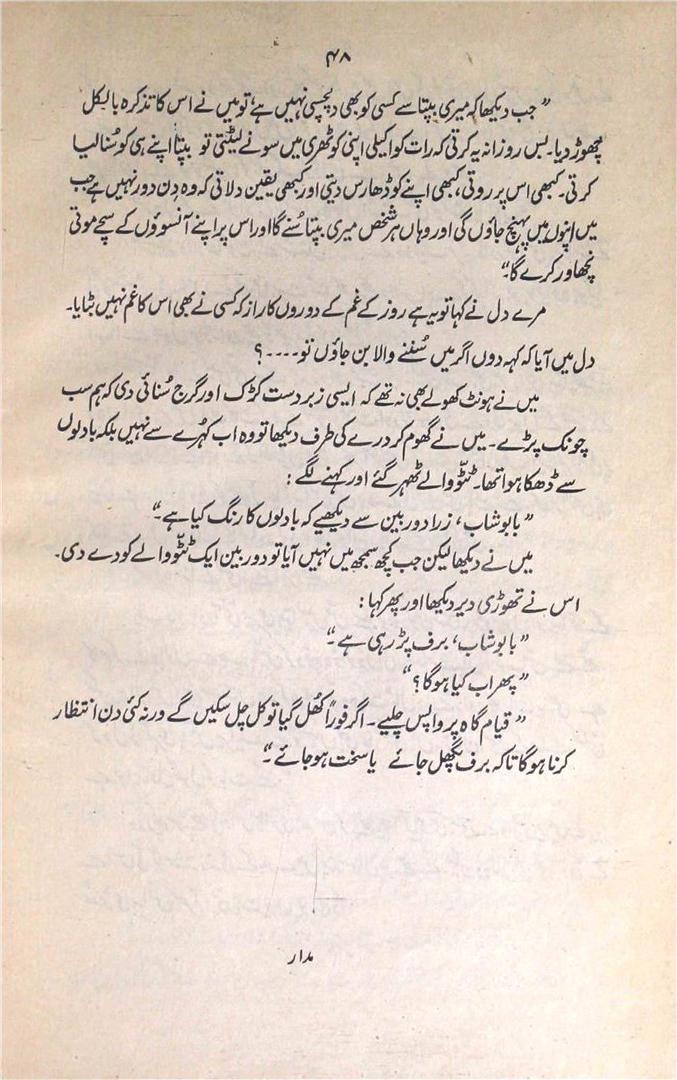 ۴۸
” جب دیکھا کہ میری بپتا سے کسی کو بھی دلچسپی نہیں ہے، تو میں نے اس کا تذکرہ بالکل
چھوڑ دیا۔ بس روزانہ یہ کرتی کہ رات کو اکیلی اپنی کوٹھری میں سونے لیٹتی تو بپتا اپنے ہی کو سُنا لیا
کرتی۔ کبھی اس پر روتی، کبھی اپنے کو ڈھارس دیتی اور کبھی یقین دلاتی کہ وہ دِن دور نہیں ہے جب
میں اپنوں میں پہنچ جاؤں گی اور وہاں ہر شخص میری بپتا سُنے گا اور اس پر اپنے آنسوؤں کے سچے موتی
نچھاور کرے گا۔“
مرے دل نے کہا تو یہ ہے روز کے غم کے دوروں کا راز کہ کسی نے بھی اس کا غم نہیں بٹایا۔
دل میں آیا کہ کہہ دوں اگر میں سُننے والا بن جاؤں تو۔۔۔۔؟
میں نے ہونٹ کھولے بھی نہ تھے کہ ایسی زبردست کڑک اور گرج سُنائی دی کہ ہم سب
چونک پڑے۔ میں نے گھوم کر درے کی طرف دیکھا تو وہ اب کُہرے سے نہیں بلکہ بادلوں
سے ڈھکا ہوا تھا۔ ٹٹو والے ٹھہر گئے اور کہنے لگے :
” بابو شاب، زرا دوربین سے دیکھیے کہ بادلوں کا رنگ کیا ہے۔“
میں نے دیکھا لیکن جب کچھ سمجھ میں نہیں آیا تو دوربین ایک ٹٹو والے کو دے دی۔
اس نے تھوڑی دیر دیکھا اور پھر کہا :
” بابو شاب، برف پڑ رہی ہے۔“
” پھر اب کیا ہوگا؟“
” قیام گاہ پر واپس چلیے۔ اگر فوراً کھُل گیا تو کل چل سکیں گے ورنہ کئی دن انتظار
کرنا ہوگا تاکہ برف پگھل جائے یا سخت ہو جائے۔“
مدار